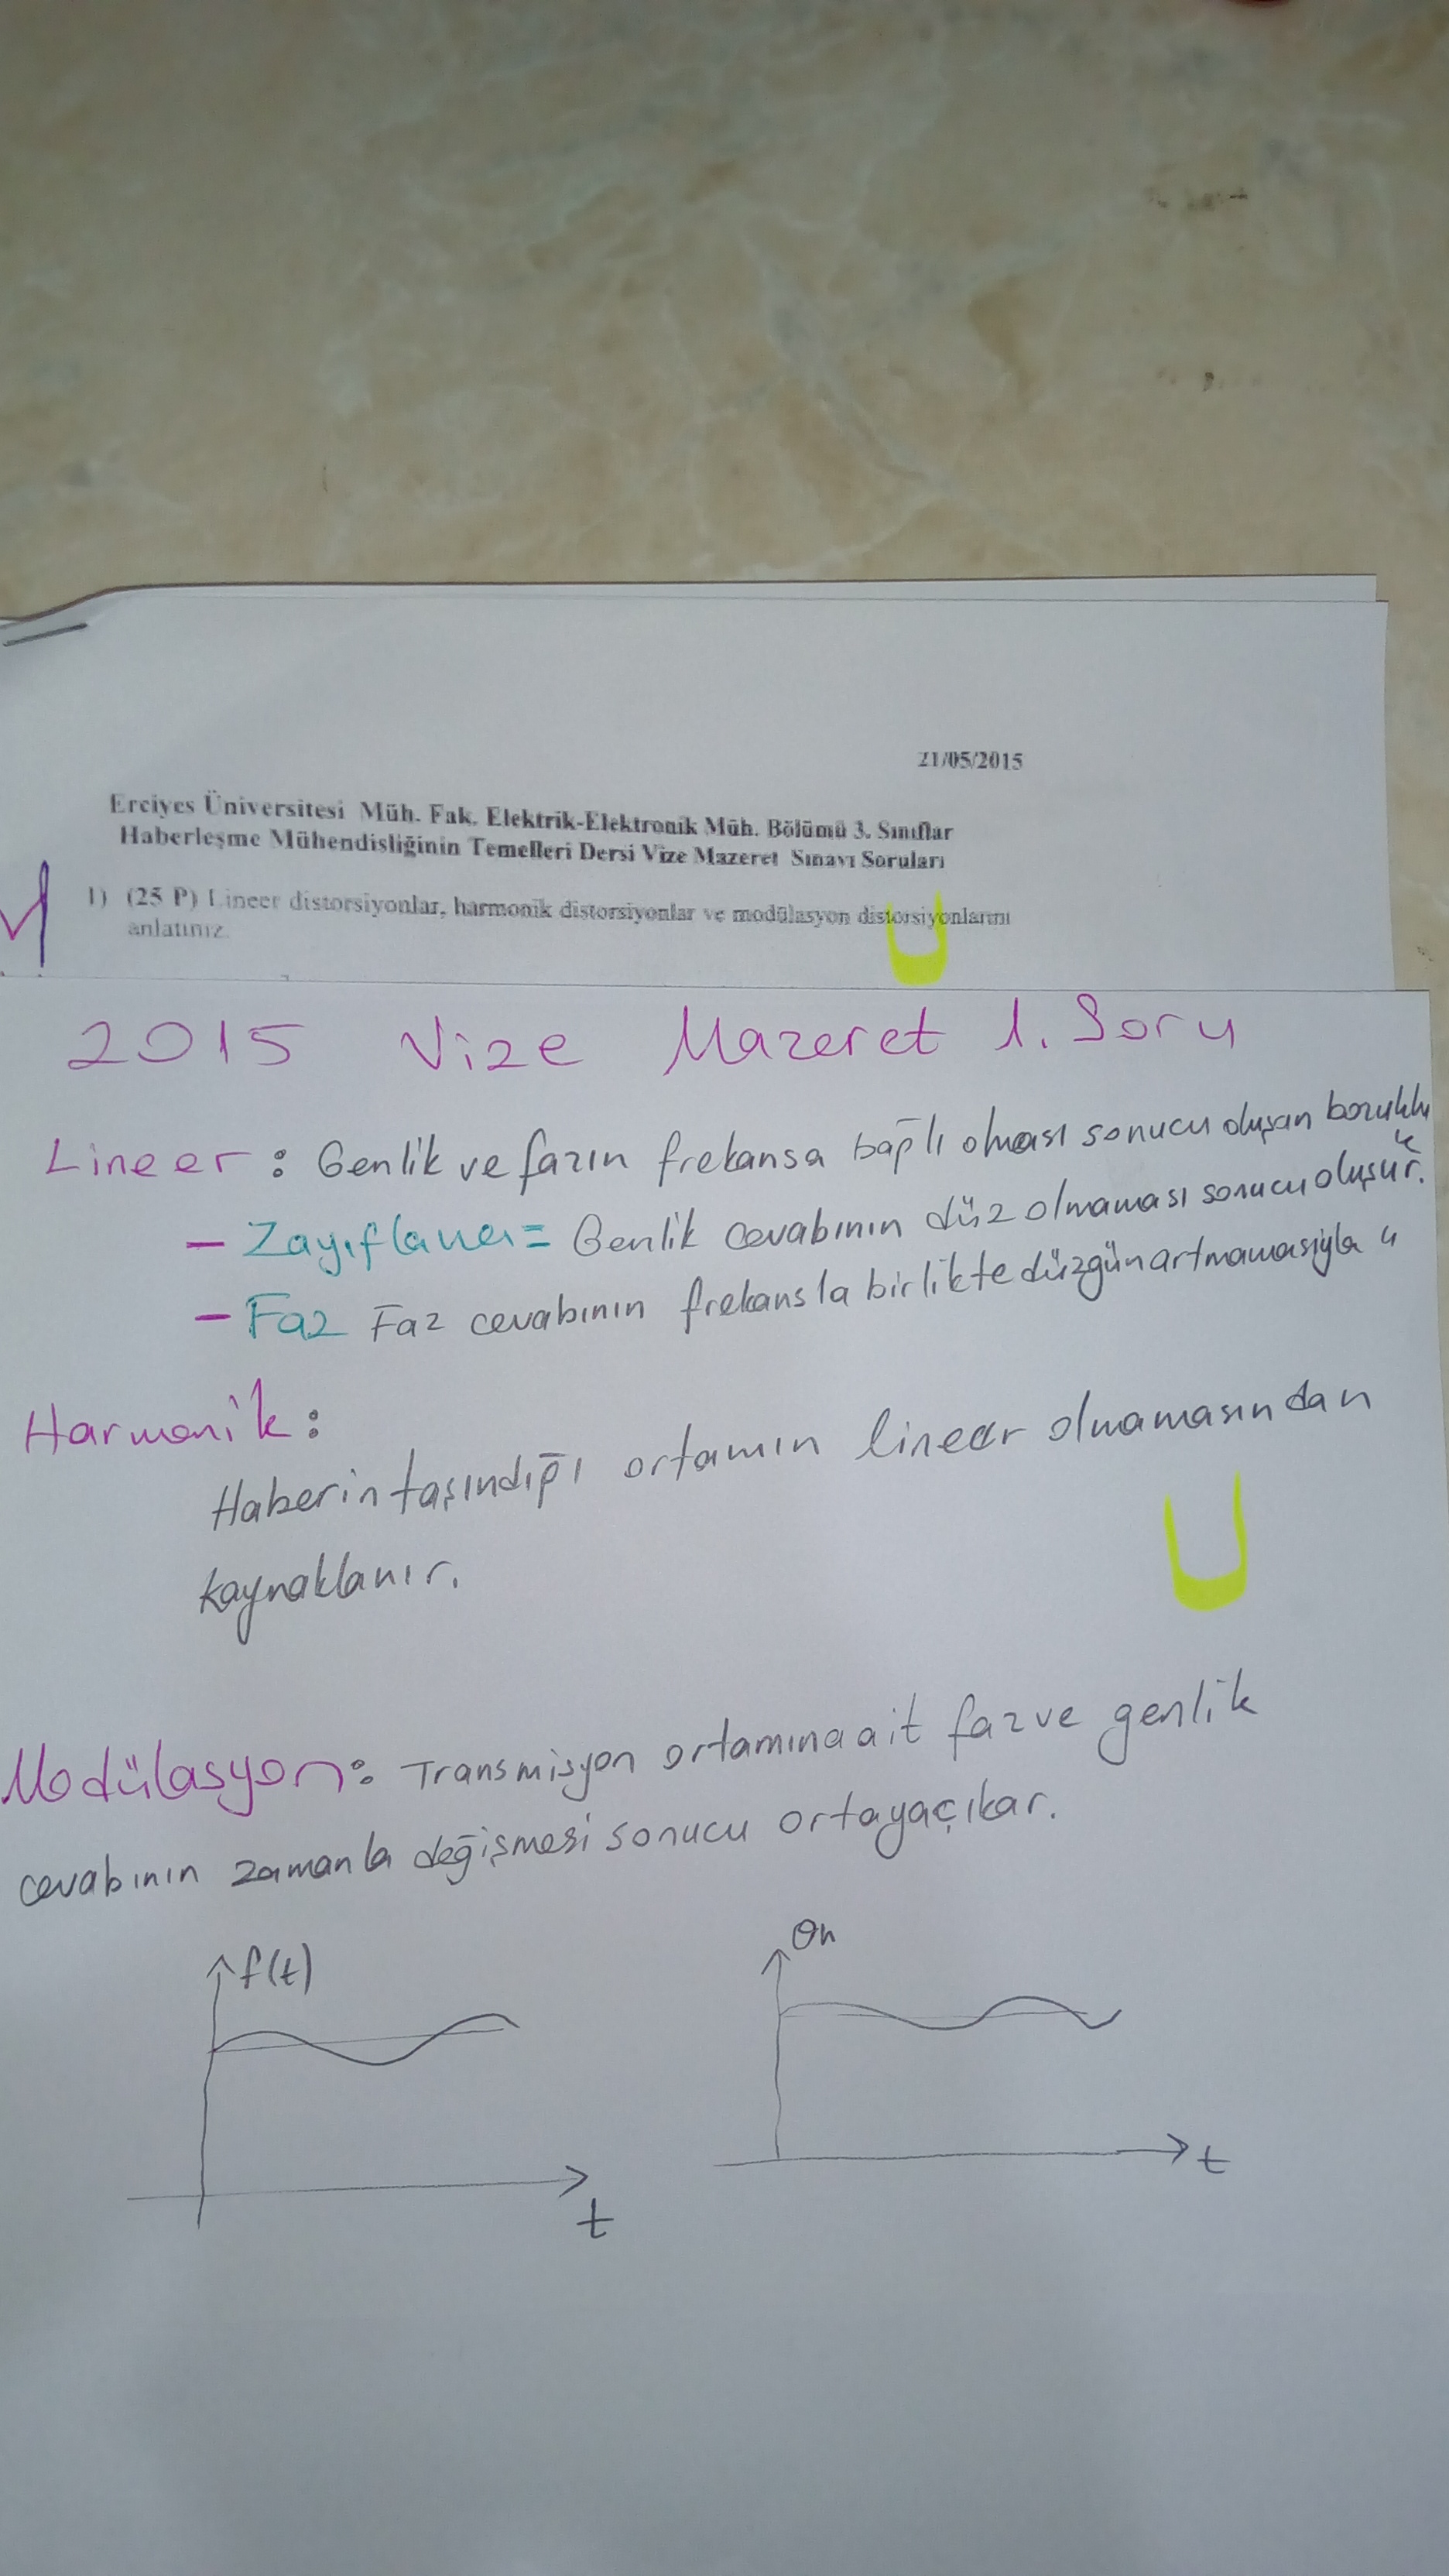 21/05/2015
Erciyes Üniversitesi Müh. Fak. Elektrik-Elektronik Müh. Bölümü 3. Sınıflar
Haberleşme Mühendisliğinin Temelleri Dersi Vize Mazeret Sınavı Soruları
1) (25 P) Lineer distorsiyonlar, harmonik distorsiyonlar ve modülasyon distorsiyonlarını
anlatınız.
2015 Vize Mazeret 1. Soru
Lineer : Genlik ve fazın frekansa bağlı olması sonucu oluşan bozukluk
- Zayıflama = Genlik cevabının düz olmaması sonucu oluşur.
- Faz Faz cevabının frekansla birlikte düzgün artmamasıyla "
Harmonik :
Haberin taşındığı ortamın lineer olmamasından
kaynaklanır.
Modülasyon : Transmisyon ortamına ait faz ve genlik
cevabının zamanla değişmesi sonucu ortaya çıkar.
f(t) θh
t t